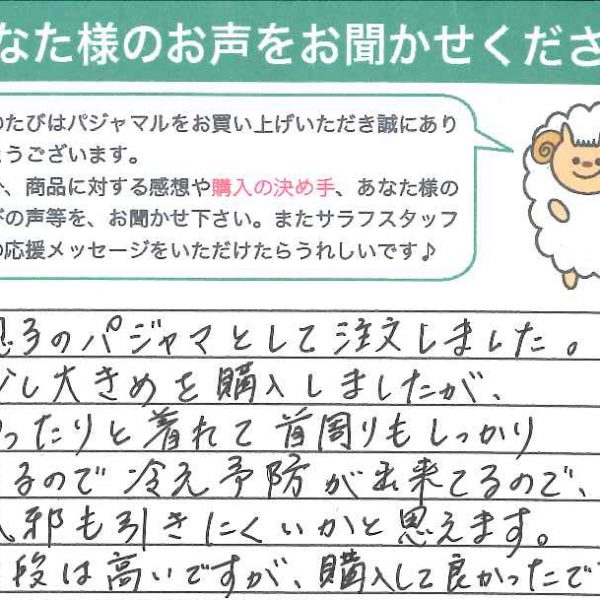 なた様のお声をお聞かせくださ
のたびはパジャマルをお買い上げいただき誠にあり
とうございます。
、商品に対する感想や購入の決め手、あなた様の
の声等を、お聞かせ下さい。またサラフスタッフ
の応援メッセージをいただけたらうれしいです♪
息子のパジャマとして注文しました。
少し大きめを購入しましたが、
ゆったりと着れて首周りもしっかり
るので冷え予防が出来てるので、
風邪も引きにくいかと思えます。
段は高いですが、購入して良かったで